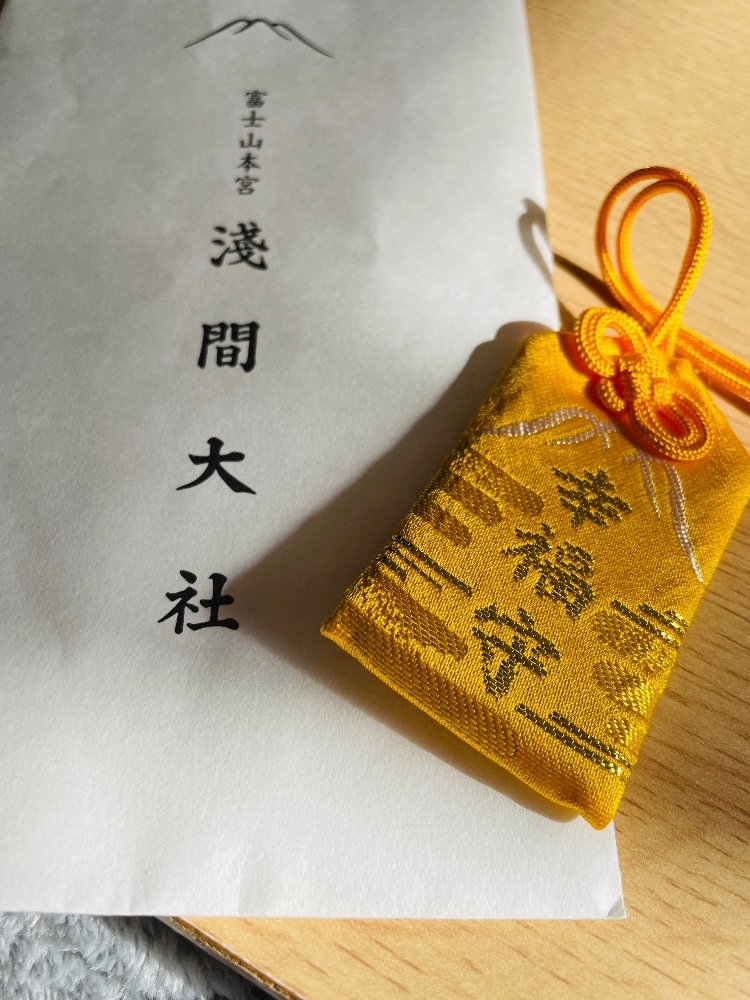 富士山本宮
淺間大社
幸福守